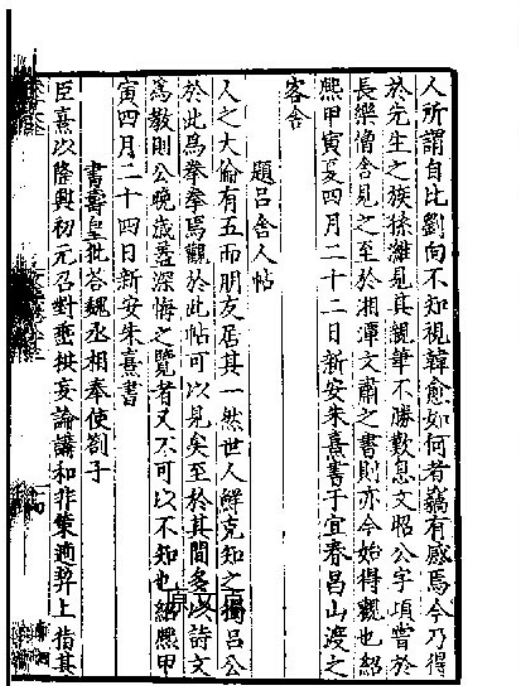 人所謂自比劉向不知視韓愈如何者竊有感焉今乃得
於先生之族孫濰見其親筆不勝歎息文昭公字項嘗於
長樂僧舍見之至於湘潭文肅之書則亦今始得觀也紹
熈甲寅夏四月二十二日新安朱熹書于宜春昌山渡之
客舎
題呂舎人帖
人之大倫有五而朋友居其一然世人鮮克知之獨呂公
於此爲拳拳焉觀於此帖可以見矣至於其間多以詩文
爲教則公晚歲蓋深悔之覽者又不可以不知也紹熈甲
寅四月二十四日新安朱熹書
書壽皇批答魏丞相奉使劄子
臣熹以隆興初元召對垂拱妄論講和非策適契上指其
原文頁